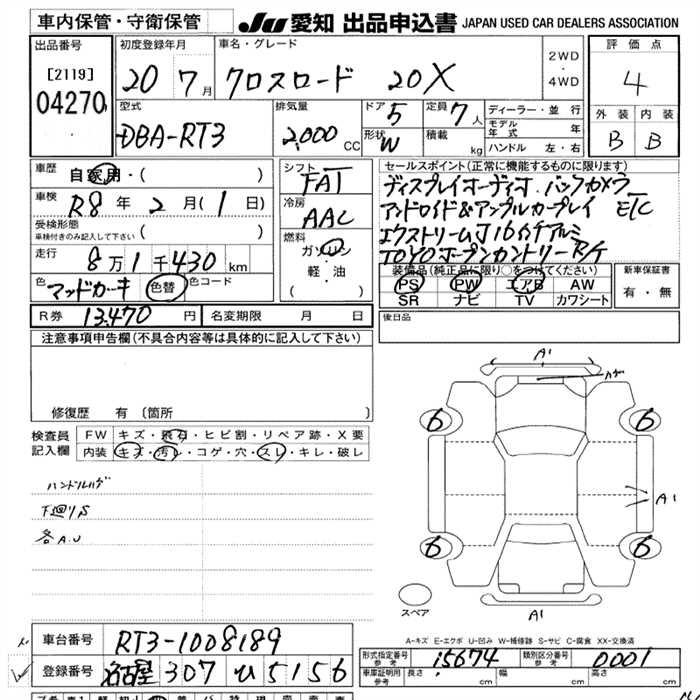 車内保管・守衛保管 JU 愛知 出品申込書 JAPAN USED CAR DEALERS ASSOCIATION
出品番号 初度登録年月 車名・グレード 評価点
[2119] 20 7月 クロスロード 20X 2WD・4WD 4
04270 型式 排気量 ドア 定員 ディーラー・並行 外装 内装
DBA-RT3 2,000 CC 5 7人 モデル年式 年 B B
形状 W 積載 kg ハンドル 左・右
車歴 自家用・( ) シフト FAT セールスポイント(正常に機能するものに限ります)
車検 R8年 2月(1日) 冷房 AAC ディスプレイオーディオ.バックカメラ
受検形態 車検付きのみ記入して下さい ( ) アンドロイド&アップルカープレイ E/C
燃料 ガソリン エクストリームJ 16インチアルミ
走行 8万1千430km 軽・油 TOYOオープンカントリーR/T
( )
色 マッドカーキ 色替 色コード 装備品(純正品に限り○をつけてください) 新車保証書
PS PW エアB AW 有・無
SR ナビ TV カワシート
R券 13,470円 名変期限 月 日 後日品
注意事項申告欄(不具合内容等は具体的に記入して下さい)
修復歴 有(箇所
検査員記入欄 FW キズ・飛石・ヒビ割・リペア跡・X要
内装 キズ・汚レ・コゲ・穴・スレ・キレ・破レ
ハンドルハゲ
下廻りS
各A.U
A1
ハゲ
6 6
A1
6 6
スペア A1
A-キズ E-エクボ U-凹み W-補修跡 S-サビ C-腐食 XX-交換済
車台番号 RT3-1008189 形式指定番号 参考 15674 類別区分番号 参考 0001
登録番号 名古屋 307 ひ 5156 車庫証明用 参考 長さ cm 幅 cm 高さ cm